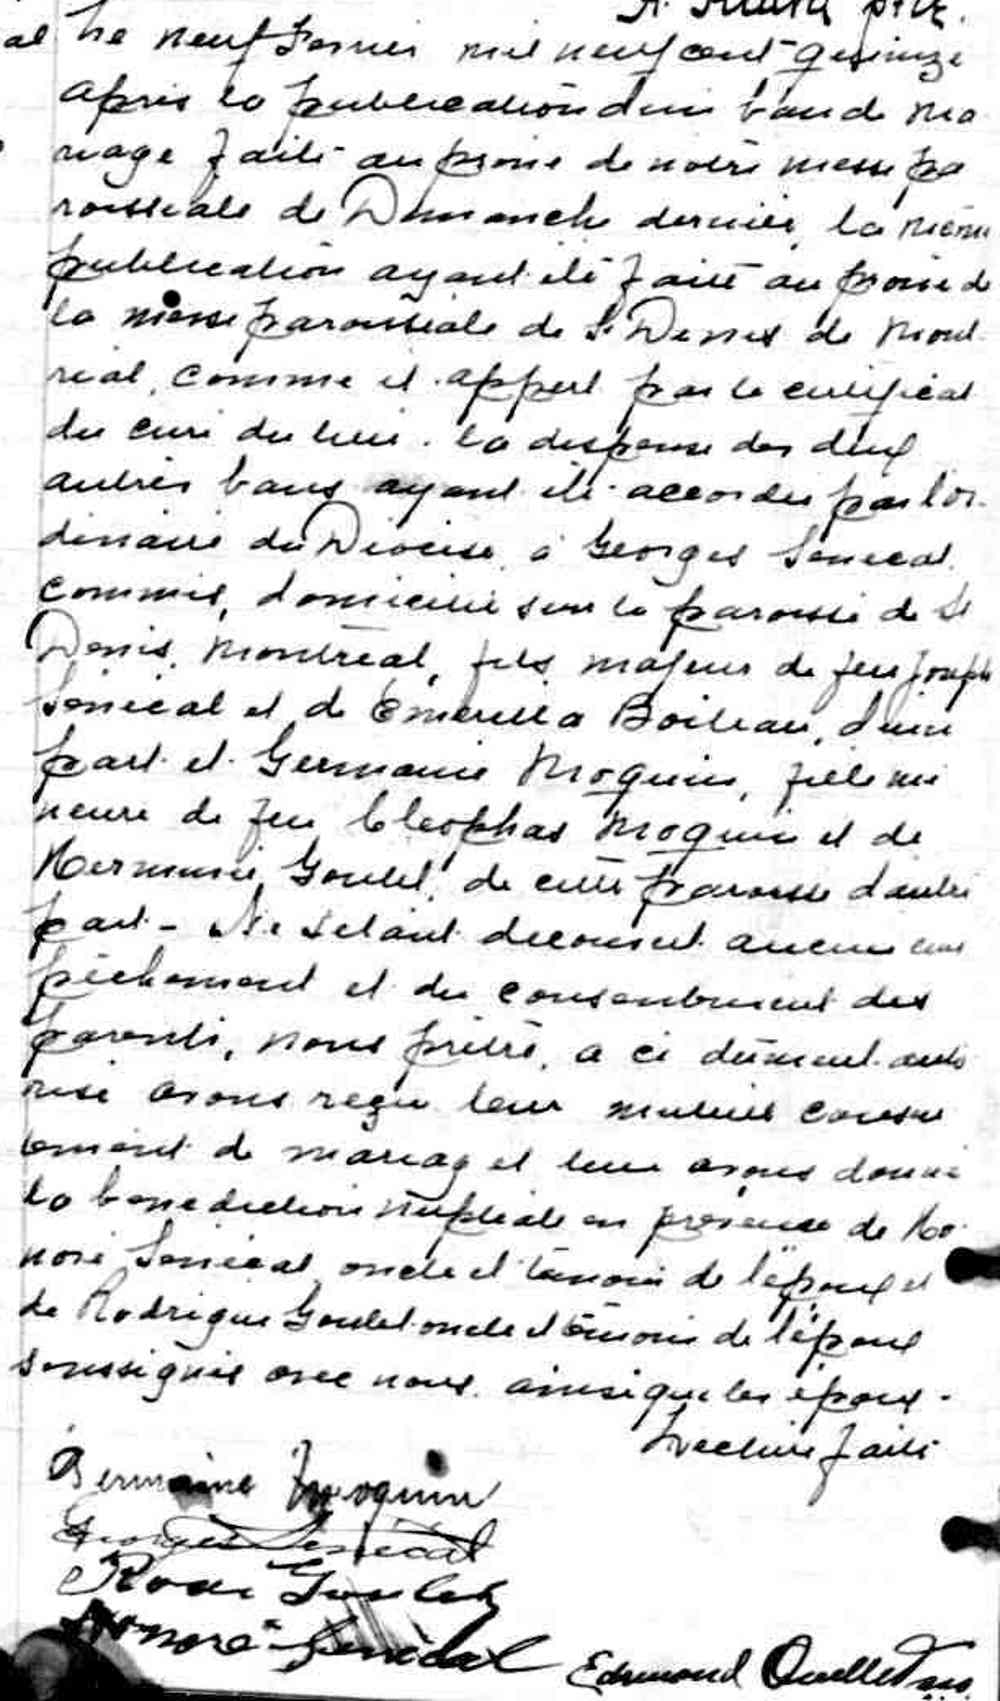 ptre.
al Le neuf Fevrier mil neuf cent quinze
apres la publication d'un ban de ma
riage faite au prone de notre messe pa
roissiale de Dimanche dernier, la meme
publication ayant été faite au prone de
la messe paroissiale de St Denis de Mont
real, comme il appert par le certificat
du curé du lieu. la dispense des deux
autres bans ayant été accordée par l'or
dinaire du Diocese, à Georges Senecal
commis, domicilié sur la paroisse de St
Denis, Montréal, fils majeur de feu Joseph
Sénécal et de Emerilla Boileau, d'une
part et Germaine Moquin, fille mi
neure de feu Cléophas Moquin et de
Herminie Goulet, de cette paroisse d'autre
part - Ne s'etant decouvert aucun em
pêchement et du consentement des
parents, nous prêtre, a ce dûment auto
risé avons reçu leur mutuel consen
tement de mariag et leur avons donné
la benediction nuptiale en présence de Ho
noré Senécal oncle et témoin de l'époux et
de Rodrigue Goulet oncle et témoin de l'épouse
soussignés avec nous ainsi que les époux -
Lecture faite
Germaine Moquin
Georges Senécal
Rod Goulet
Honoré Senécal Edmond Ouellet